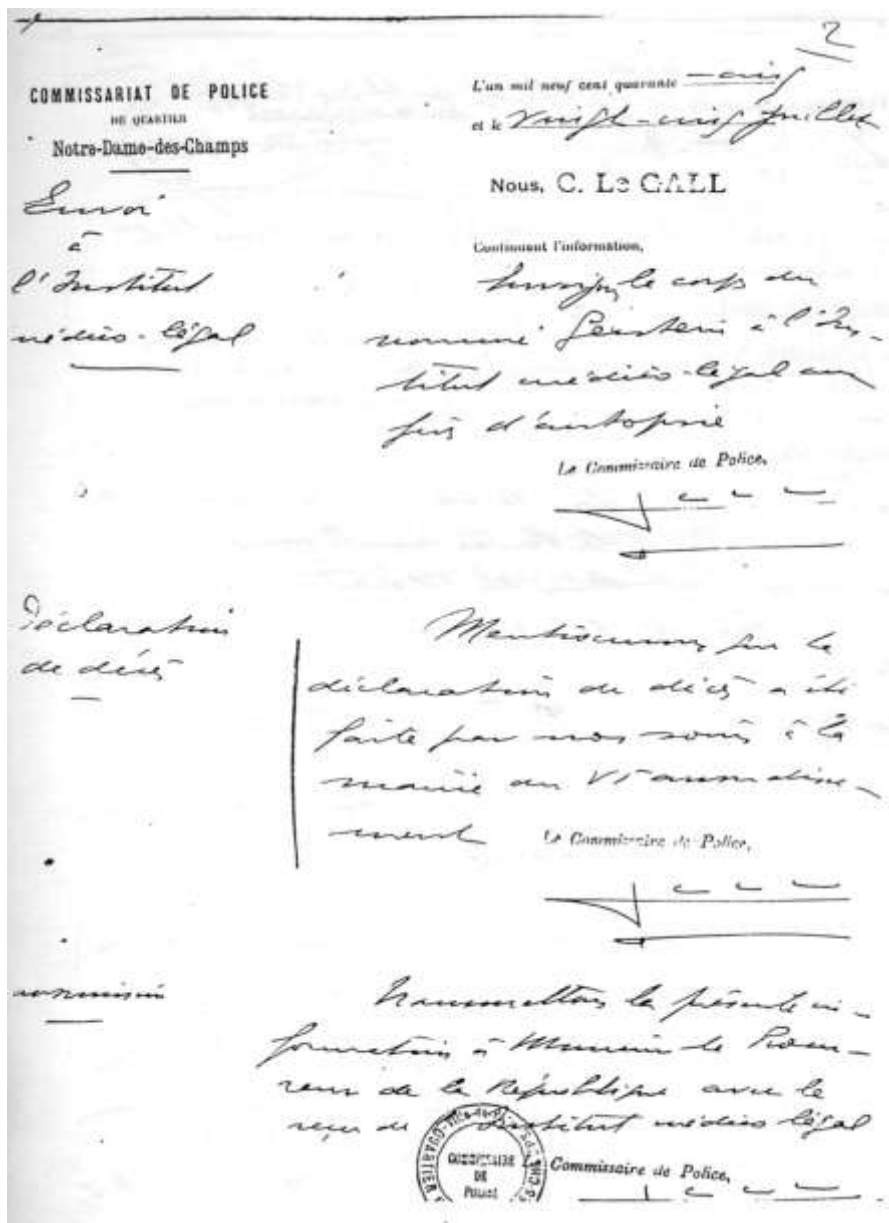 2
COMMISSARIAT DE POLICE
DE QUARTIER
Notre-Dame-des-Champs
L'an mil neuf cent quarante - cinq
et le vingt-cinq juillet
Nous, C. Le GALL
Envoi
à
l'Institut
médico-légal
Continuant l'information,
Envoyons le corps du
nommé Gerstein à l'Ins-
titut médico-légal aux
fins d'autopsie
Le Commissaire de Police,
Déclaration
de décès
Mentionnons que la
déclaration de décès a été
faite par nos soins à la
mairie du VI arrondisse-
ment
Le Commissaire de Police,
Transmettons la présente in-
formation à Monsieur le Procu-
reur de la République avec le
reçu de l'Institut médico légal
COMMISSAIRE
DE
POLICE
Le Commissaire de Police,